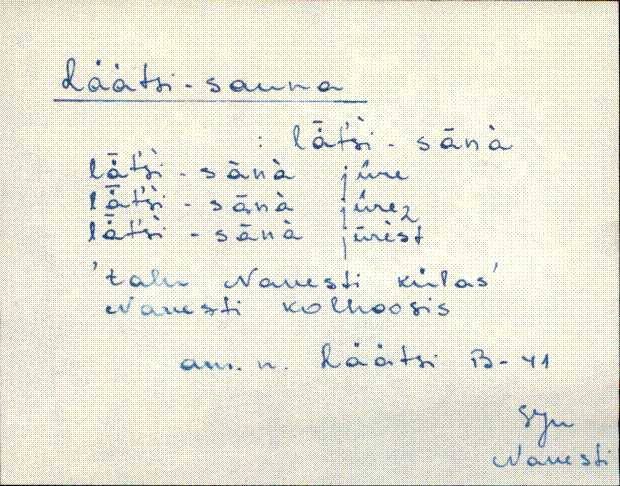 Läätsi-sauna
: lǟt́śì - sānà
lǟt́śì - sānà jūre
lǟt́śì - sānà jūre₂
lǟt́śì - sānà jūrest
'talu Navesti külas'
Navesti kolhoosis
am. n. Läätsi B-41
SJn
Navesti